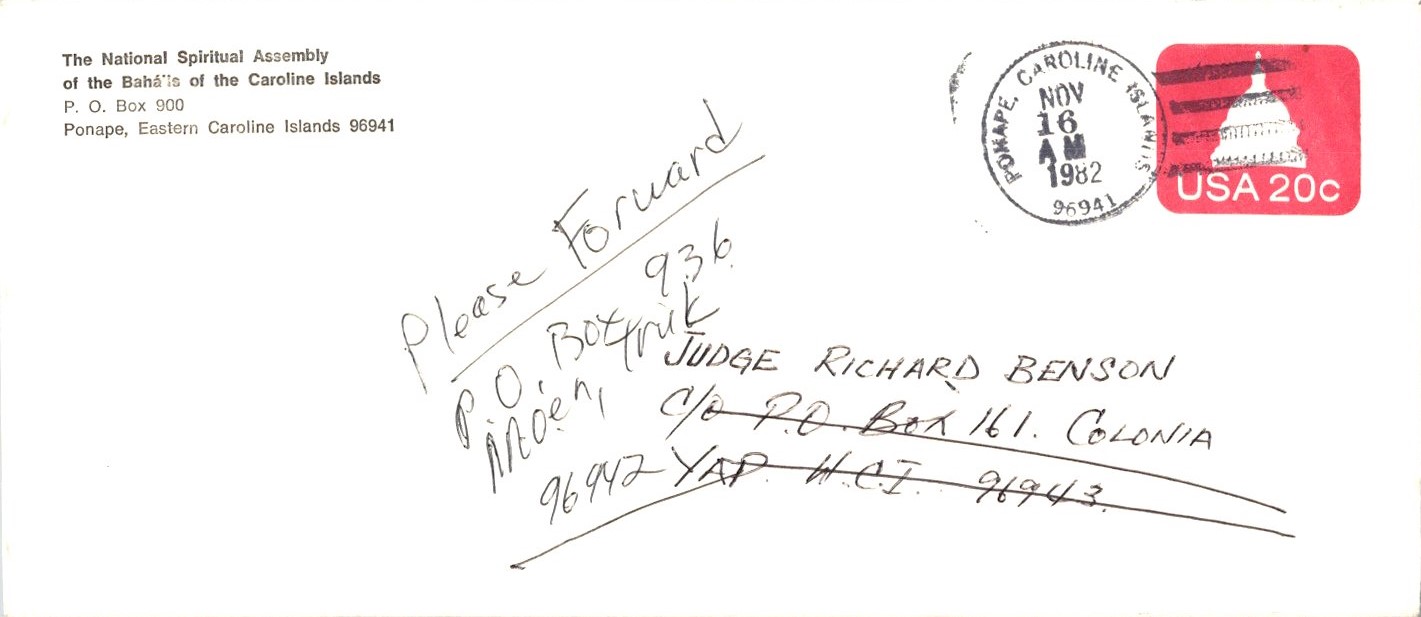 The National Spiritual Assembly
of the Bahá'ís of the Caroline Islands
P. O. Box 900
Ponape, Eastern Caroline Islands 96941
PONAPE, CAROLINE ISLANDS
NOV
16
AM
1982
96941
USA 20c
Please Forward
P.O. Box 936
Moen, Truk
96942
JUDGE RICHARD BENSON
c/o P.O. Box 161. COLONIA
YAP W.C.I. 96943.